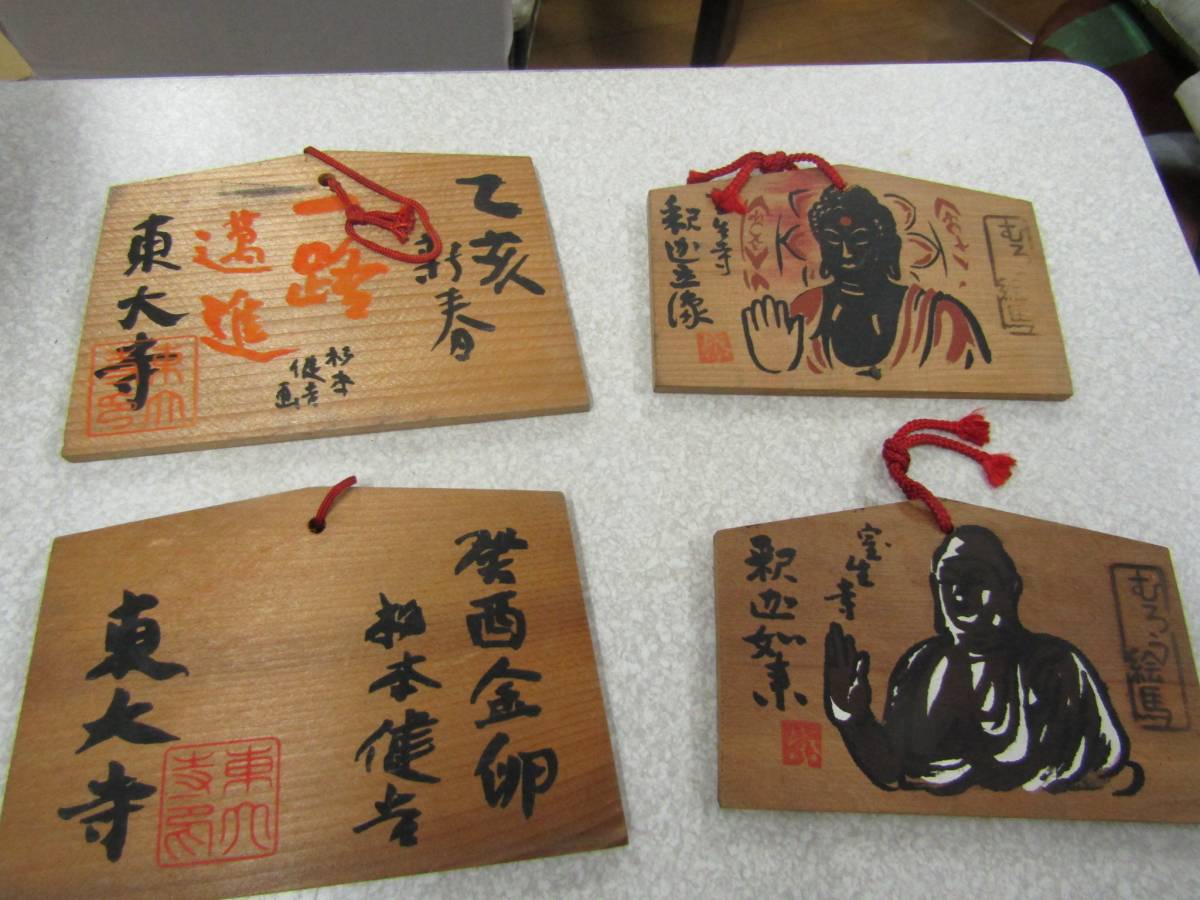 乙亥
新春
一路
邁進
杉本
健吉
画
東大寺
室生寺
釈迦立像
むろう絵馬
癸酉金卵
杉本健吉
東大寺
東大
寺印
むろう絵馬
室生寺
釈迦如来